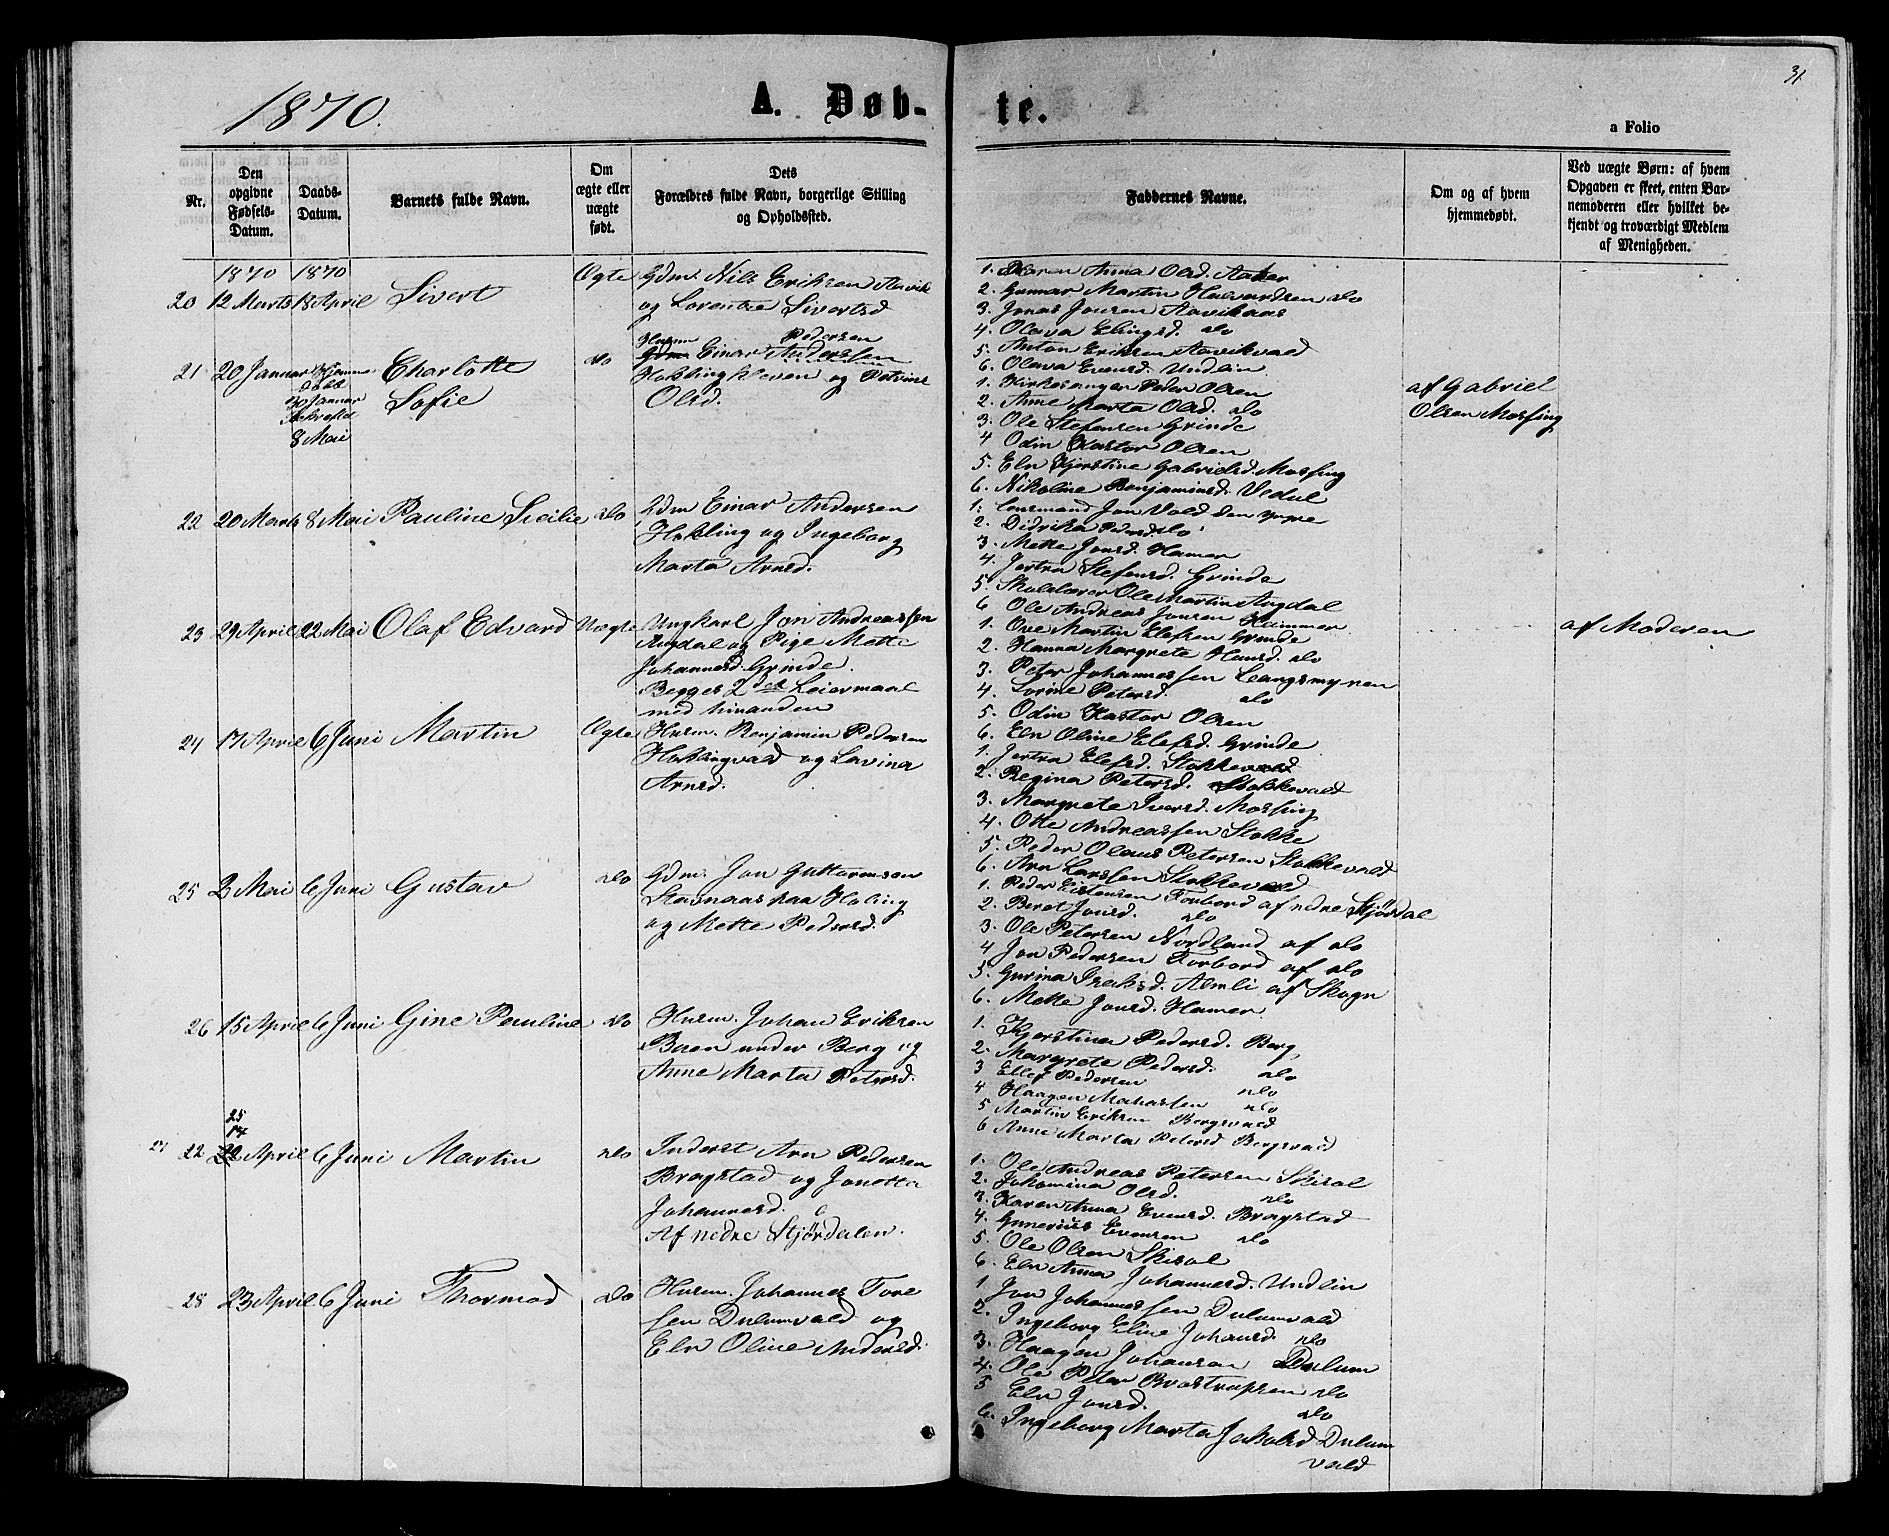 31
1870. A. Døb- te.
a Folio
Nr.
Den opgivne Fødsels-Datum.
Daabs-Datum.
Barnets fulde Navn.
Om ægte eller uægte født.
Dets Forældres fulde Navn, borgerlige Stilling og Opholdssted.
Faddernes Navne.
Om og af hvem hjemmedøbt.
Ved uægte Børn: af hvem Opgaven er skeet, enten Barnemoderen eller hvilket bekjendt og troværdigt Medlem af Menigheden.
1870 1870
20 12 Marts 18 April Sivert Ægte Gdm. Nils Eriksen Aavik
og Lorentse Sivertsd
1. Karen Anna Olsd. Aaker
2. Gunnar Martin Halvardsen do
3. Jonas Jonsen Aavikaas
4. Olava Elingsd. do
5. Anton Eriksen Aavikvald
6. Olava Evensd. Undlin
21 20 Januar Hjemmedøbt 30 Januar 8 Mai Charlotte Sofie do
Husm Pedersen
Gdm Einar Anderssen
Hokling kleven og Petrine
Olsd.
1. Kirkesanger Peder Olsen
2. Anne Marta Olsd. do
3. Ole Stefensen Grinde
4 Odin Kastor Olsen
5. Eln Kjerstine Gabrielsd. Mossing
6. Nikoline Benjaminsd. Vedul
af Gabriel
Olsen Mossing
22 20 Marts 8 Mai Pauline Secilie do Gdm Einar Andersen
Hokling og Ingeborg
Marta Arnsd.
1. Lensmand Jon Vold den yngre
2. Didrika Pedersd do
3. Mette Jonsd. Hamer
4. Jertru Stefensd. Grinde
5. Skolelærer Ole Martin Augdal
6 Ole Andreas Jonsen Hammer
23 29 April 22 Mai Olaf Edvard Uægte Ungkarl Jon Andreassen
Augdal og Pige Mette
Johannesd. Grinde.
Begges 2det Leiermaal
med hinanden
1. Ove Martin Elefsen Grinde
2. Hanna Margrete Hansd. do
3. Peter Johannessen Langsmyren
4. Lovine Petersd. do
5. Odin Kastor Olsen
6. Eln Oline Elefsd. Grinde
af Moderen
24 17 April 6 Juni Martin Ægte Husm. Benjamin Pedersen
Hoklingvald og Lavina
Arnsd.
1. Jertru Elefsd. Stokkevald
2. Regina Petersd. Stokkevald
3. Margrete Iversd. Mossing
4. Otte Andreassen Stokke
5. Peder Olaus Petersen Stokkevald
6. Arn Larssen Stokkevald
25 2 Mai 6 Juni Gustav do Gdm. Jon Guttormsen
Stavnaas paa Holing
og Mette Pedersd.
1. Peder Eistensen Forbord af nedre Stjørdal
2. Beret Jonsd. do
3. Ole Petersen Nordland af do
4 Jon Pedersen Forbord af do
5. Gurina Iveksd. Almli af Skogn
6. Mette Jonsd. Hamer
26 15 April 6 Juni Gine Pauline do Husm. Johan Eriksen
Buen under Berg og
Anne Marta Petersd.
1. Kjerstina Pedersd. Berg
2. Margrete Pedersd. do
3 Ellef Pedersen do
4 Haagen Mahassen do
5 Martin Eriksen Bergsvald
6 Anne Marta Petersd Bergsvald
25
14
27 22 22 April 6 Juni Martin do Inderst Arn Pedersen
Bragstad og Jonetta
Johannesd.
Af nedre Stjørdalen.
1. Ole Andreas Petersen Skisal
2. Johannna Olsd. do
3. Karen Anna Evensd. Bragstad
4. Gunerius Evensen do
5. Ole Olsen Skisal
6. Eln Anna Johannesd. Undlin
28 23 April 6 Juni Thormod do Husm. Johannes Tore
sen Dulumvald og
Eln Oline Andersd.
1 Jon Johannessen Dulumvald
2. Ingeborg Eline Johansd. do
3. Haagen Johansen Dulum
4. Ole Peter Brostrupsen do
5 Eln Jonsd. do
6. Ingeborg Marta Jakobsd Dulum
vald